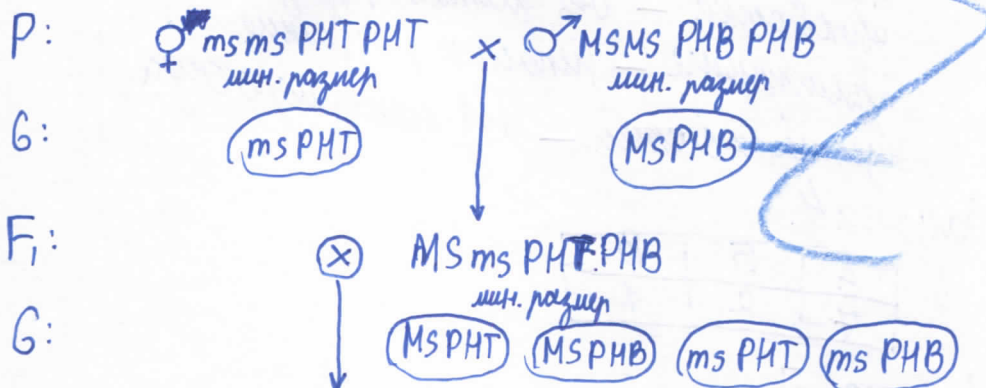 P: ♀ msms PHT PHT × ♂ MSMS PHB PHB
мин. размер мин. размер
G: msPHT MSPHB
F₁: × MSms PHT PHB
мин. размер
G: MSPHT MSPHB msPHT msPHB